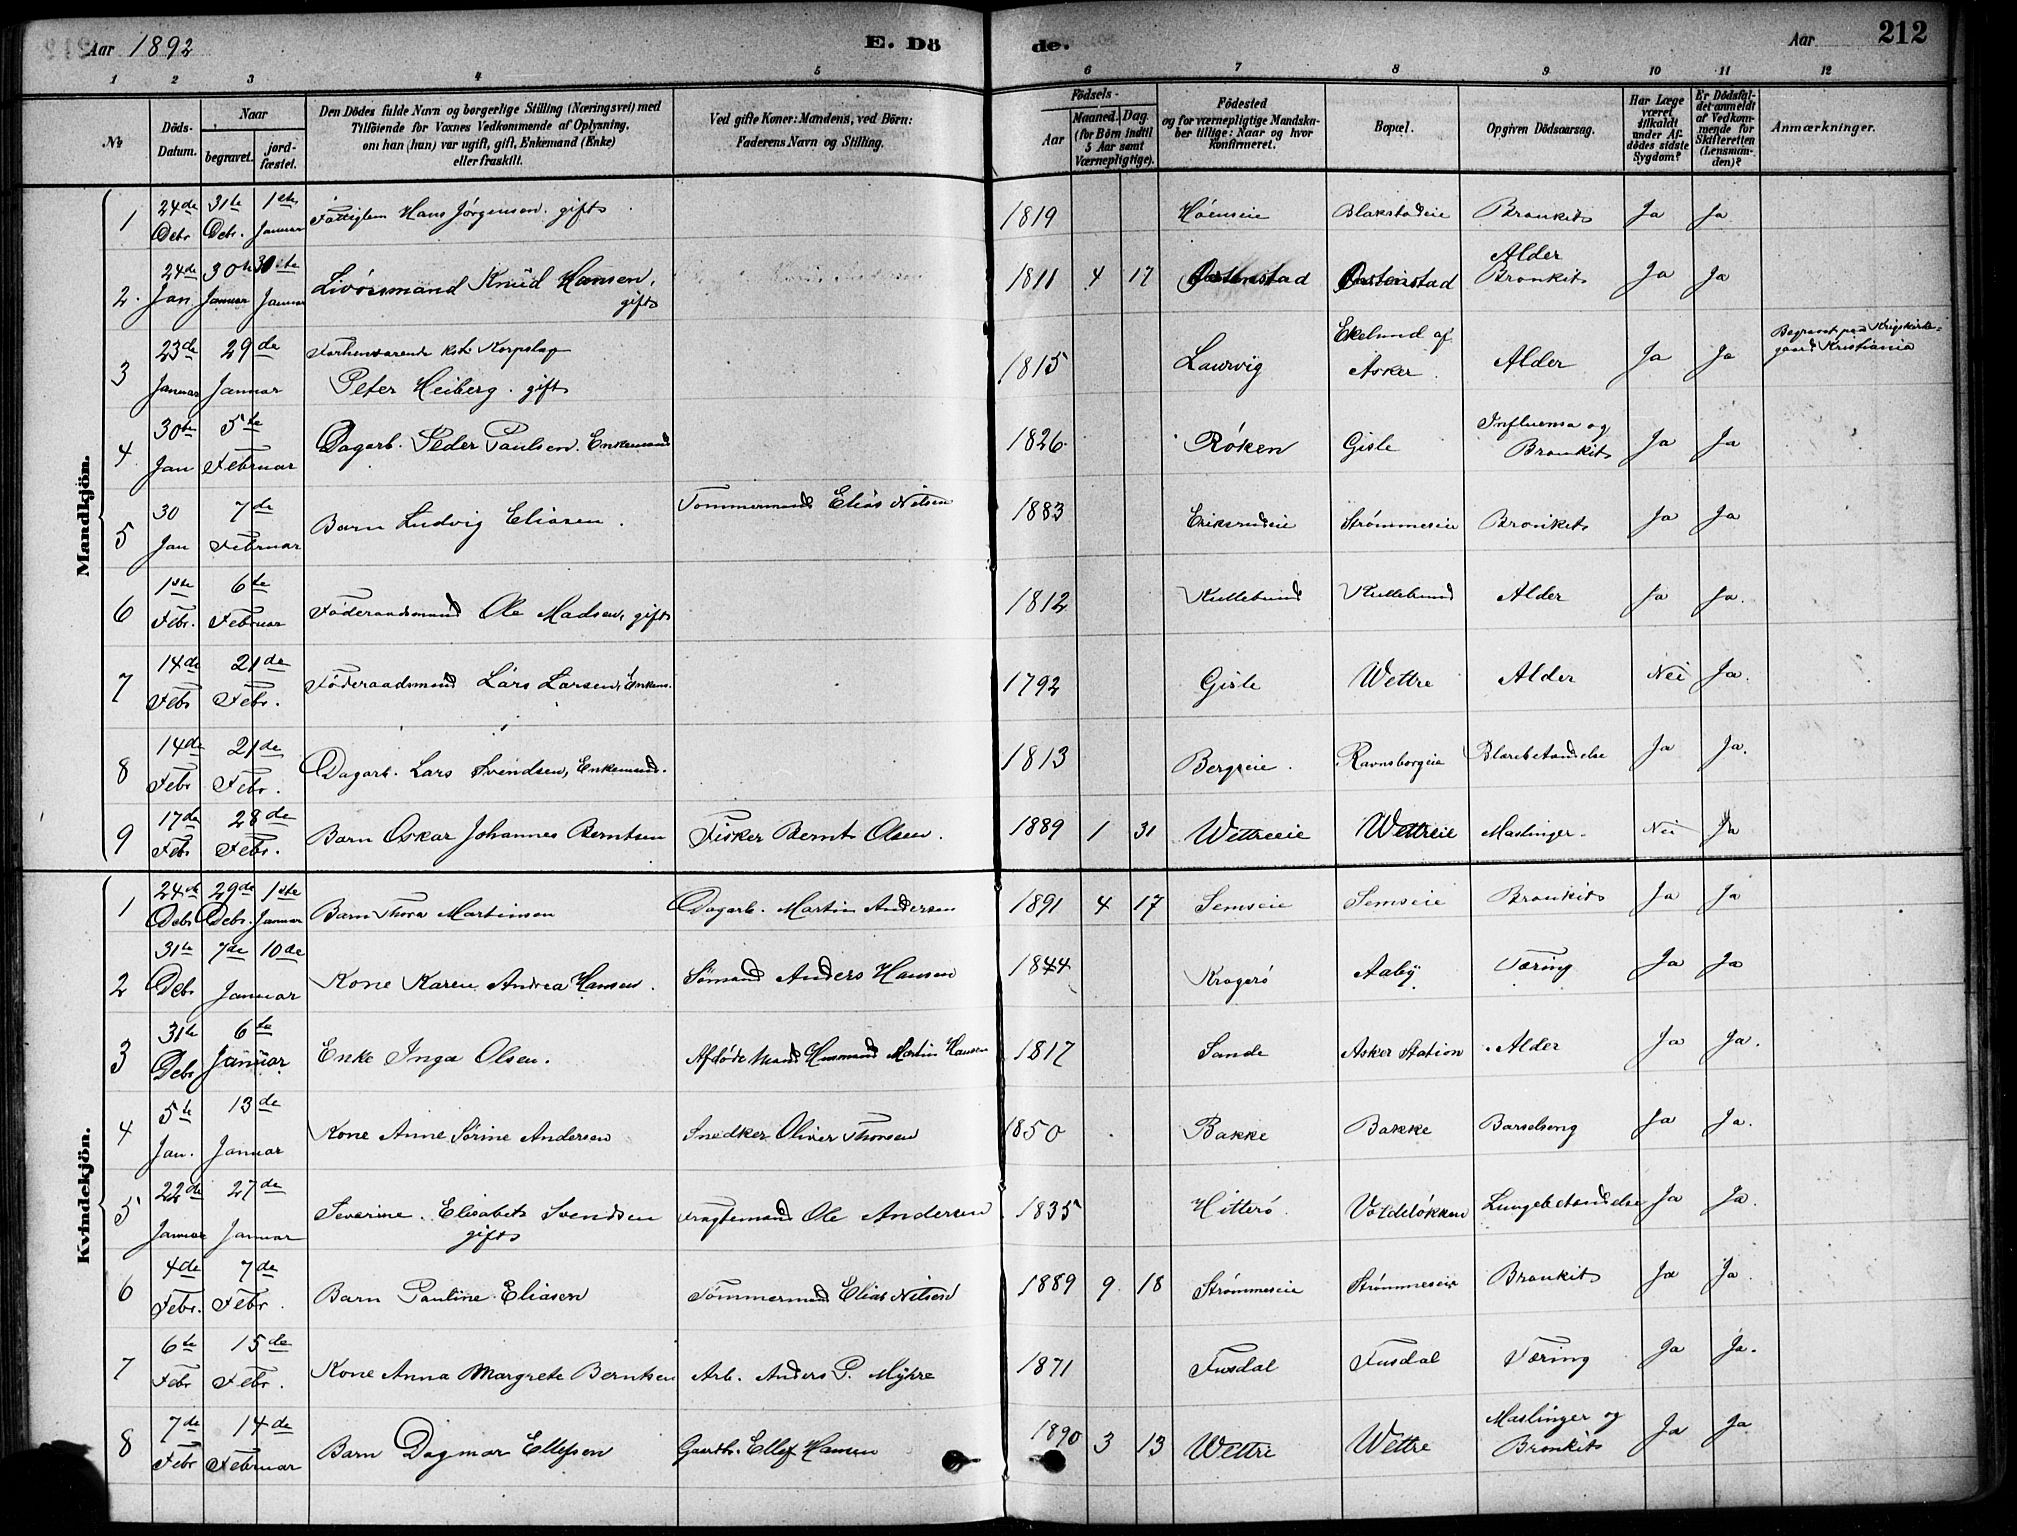 Aar 1892
E. Dö
de.
Aar
212
1 2 3 4 5 6 7 8 9 10 11 12
№
Döds-
Datum.
Naar
begravet.
jord-
fæstet.
Den Dödes fulde Navn og borgerlige Stilling (Næringsvei) med
Tilföiende for Voxnes Vedkommende af Oplysning,
om han (hun) var ugift, gift, Enkemand (Enke)
eller fraskilt.
Ved gifte Koner: Mandens, ved Börn:
Faderens Navn og Stilling.
Födsels-
Aar
Maaned. Dag
(for Börn indtil
5 Aar samt
Værnepligtige).
Födested
og for værnepligtige Mandska-
ber tillige: Naar og hvor
konfirmeret.
Bopæl.
Opgiven Dödsaarsag.
Har Læge
været
tilkaldt
under Af-
dödes sidste
Sygdom?
Er Dödsfal-
det anmeldt
af Vedkom-
mende for
Skifteretten
(Lensman-
den)?
Anmærkninger.
Mandkjön.
1 24de Debr 31te Debr. 1ste Januar Fattiglem Hans Jørgensen. gift 1819 Høenseie Blakstadeie Bronkit Ja Ja
2. 24de Jan. 30te Januar 30te Januar Knud Hansen, gift 1811 4 17 Østenstad Østenstad Alder Bronkit Ja Ja
3 23de Januar 29de Januar Forhenværende Korpslæge Peter Heiberg. gift 1815 Laurvig Ekelund af Asker. Alder Ja Ja Begravet paa Krigskirke-
gaard Kristiania
4 30te Jan 5te Februar Dagarb. Peder Paulsen. Enkemand 1826 Røken Gisle Influensa og Bronkit Ja Ja
5 30 Jan 7de Februar Barn Ludvig Eliasen. Tømmermand Elias Nilsen 1883 Eriksrudeie Strømmeseie Bronkit Ja Ja
6 1ste Febr. 6te Februar Föderaadsmand Ole Madsen, gift 1812 Kullebund Kullebund Alder Ja Ja.
7 14de Febr 21de Febr. Föderaadsmand Lars Larsen, Enkem. 1792 Gisle Wettre Alder Nei Ja.
8 14de Febr 21de Febr. Dagarb. Lars Svendsen, Enkemand. 1813 Bergseie. Ravnsborgeie Blærebetændelse Ja Ja.
9 17de Febr 28de Febr. Barn Oskar Johannes Berntsen Fisker Bernt Olsen. 1889 1 31 Wettreeie Wettreeie Mæslinger. Nei Ja
Kvindekjön.
1 24de Debr 29de Debr. 1ste Januar Barn Thora Martinsen Dagarb. Martin Andersen 1891 4 17 Semseie Semseie Bronkit Ja Ja
2 31te Debr 7de Januar 10de Kone Karen Andrea Hansen. Sømand Anders Hansen 1844 Kragerø Aaby Tæring Ja Ja
3 31te Debr 6te Januar Enke Inga Olsen. Afdøde Mand Husmand Martin Hansen 1817 Sande Asker Station Alder Ja Ja.
4 5te Jan. 13de Januar Kone Anne Sørine Andersen Snedker Oliver Thorsen 1850 Bakke Bakke Barselseng Ja Ja.
5 22de Januar 27de Januar Severine Elisabet Svendsen gift Fragtemand Ole Andersen 1835 Hitterø. Voldeløkken Lungebetændelse Ja Ja.
6 4de Febr. 7de Febr. Barn Pauline Eliasen Tømmermand Elias Nilsen 1889 9 18 Strømmeseie Strømmeseie Bronkit Ja Ja.
7 6te Febr 15de Febr. Kone Anna Margrete Berntsen Arb. Anders P. Myhre 1871 Fusdal Fusdal Tæring Ja Ja.
8 7de Febr 14de Februar Barn Dagmar Ellefsen Gaardbr. Ellef Hansen 1890 3 13 Wettre Wettre Mæslinger og Bronkit Ja Ja